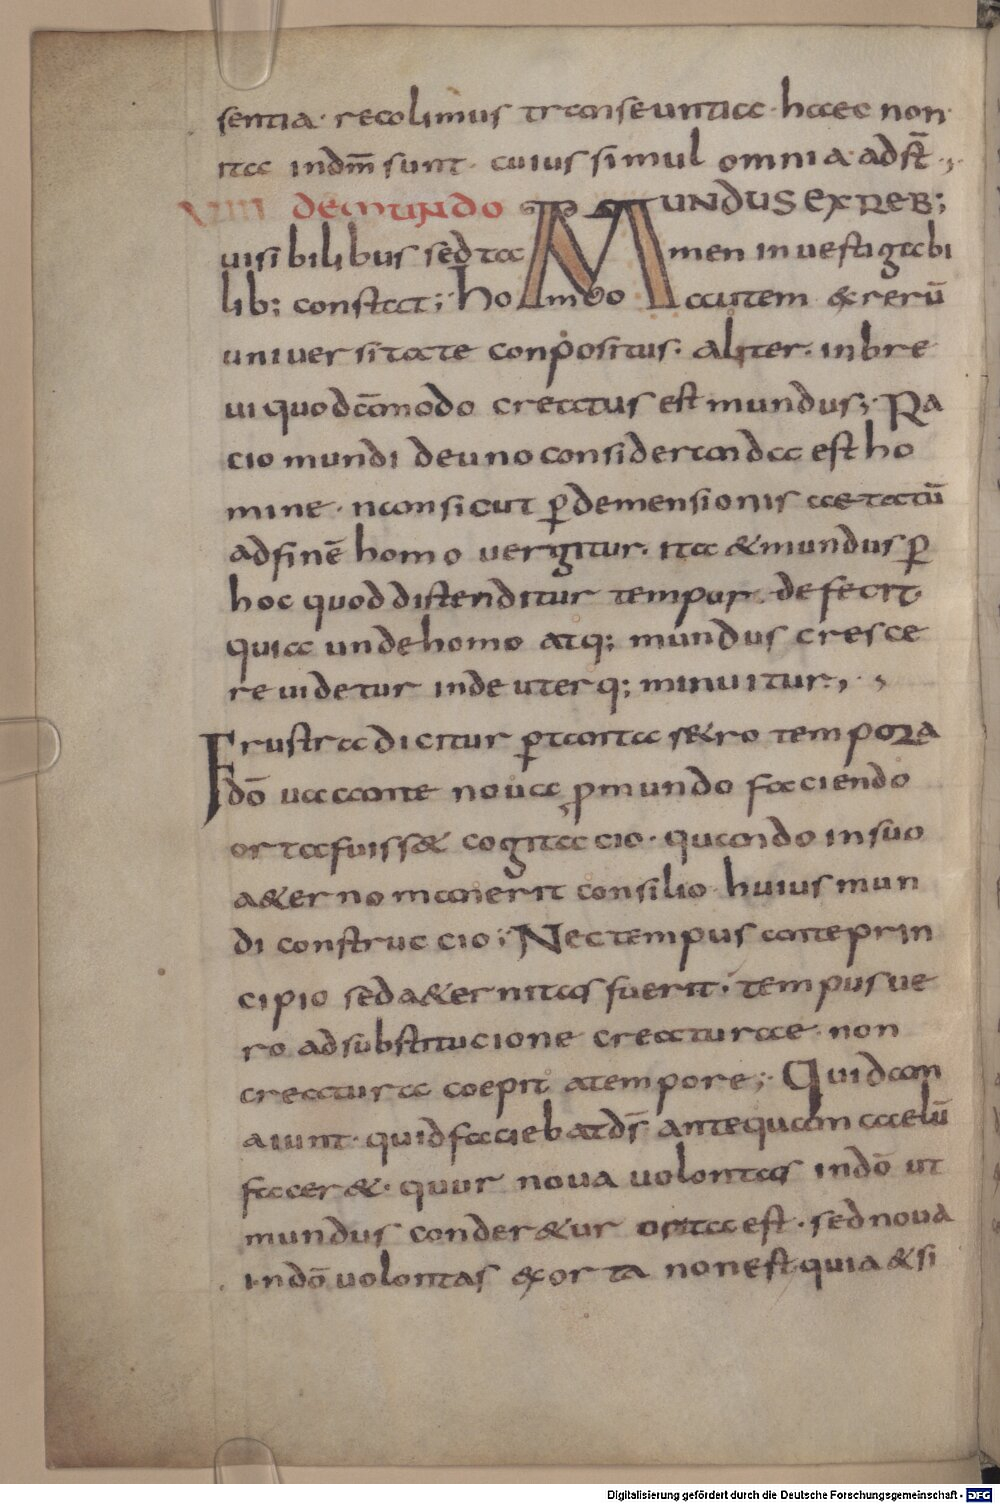 sentia· recolimus transeuntia· haec non
ita indm̄ sunt· cuius simul omnia adst̄·,
VIIII demundo MUNDUS EX REB;
uisibilibus sed ta men inuestigabi
lib; constat; homo autem & rerū
uniuersitate conpositus· aliter· inbre
ui quodcōmodo creatus est mundus; Ra
cio mundi deuno consideranda est ho
mine· nam sicut ꝑ demensionis aetatū
adfinē homo uergitur· ita & mundus ꝑ
hoc quod distenditur tempur· defecit·
quia unde homo atq; mundus cresce
re uidetur inde uterq; minuitur,·,
Frustra dicitur ꝑ tanta s&ro tempora
dō uacante noua ꝓ mundo faciendo
orta fuiss& cogitacio· quando insuo
a&erno manerit consilio huius mun
di construccio; Nec tempus ante prin
cipio sed a&ernitas fuerit· tempus ue
ro adsubstitucione creaturae· non
creatura coepit atempore; Quidam
aiunt· quid faciebat ds̄ antequam caelū
facer&· quur noua uolontas indō ut
mundus conder&ur orta est· sed noua
indō uolontas exorta non est quia & si
Digitalisierung gefördert durch die Deutsche Forschungsgemeinschaft - DFG